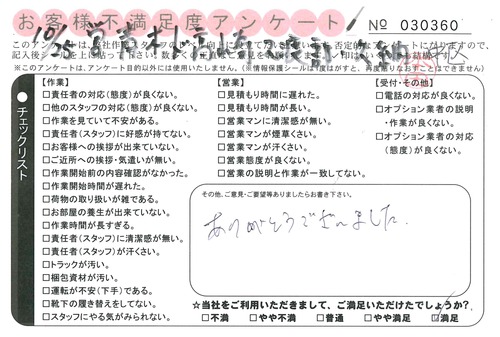 お客様不満足度アンケート
No 030360
10/25
【作業】
□責任者の対応(態度)が良くない。
□他のスタッフの対応(態度)が良くない。
□作業を見ていて不安がある。
□責任者(スタッフ)に好感が持てない。
□お客様への挨拶が出来ていない。
□ご近所への挨拶・気遣いが無い。
□作業開始前の内容確認がなかった。
□作業開始時間が遅れた。
□荷物の取り扱いが雑である。
□お部屋の養生が出来ていない。
□作業時間が長すぎる。
□責任者(スタッフ)に清潔感が無い。
□責任者(スタッフ)が汗くさい。
□トラックが汚い。
□梱包資材が汚い。
□運転が不安(下手)である。
□靴下の履き替えをしてない。
□スタッフにやる気がみられない。
【営業】
□見積もり時間に遅れた。
□見積もり時間が長い。
□営業マンに清潔感が無い。
□営業マンが煙草くさい。
□営業マンが汗くさい。
□営業態度が良くない。
□営業の説明と作業が一致してない。
【受付・その他】
□電話の対応が良くない。
□オプション業者の説明
・作業が良くない。
□オプション業者の対応
(態度)が良くない。
チェックリスト
その他、ご意見・ご要望等ありましたらお書き下さい。
ありがとうございました。
☆当社をご利用いただきまして、ご満足いただけたでしょうか?
□不満 □やや不満 □普通 □やや満足 ☑満足